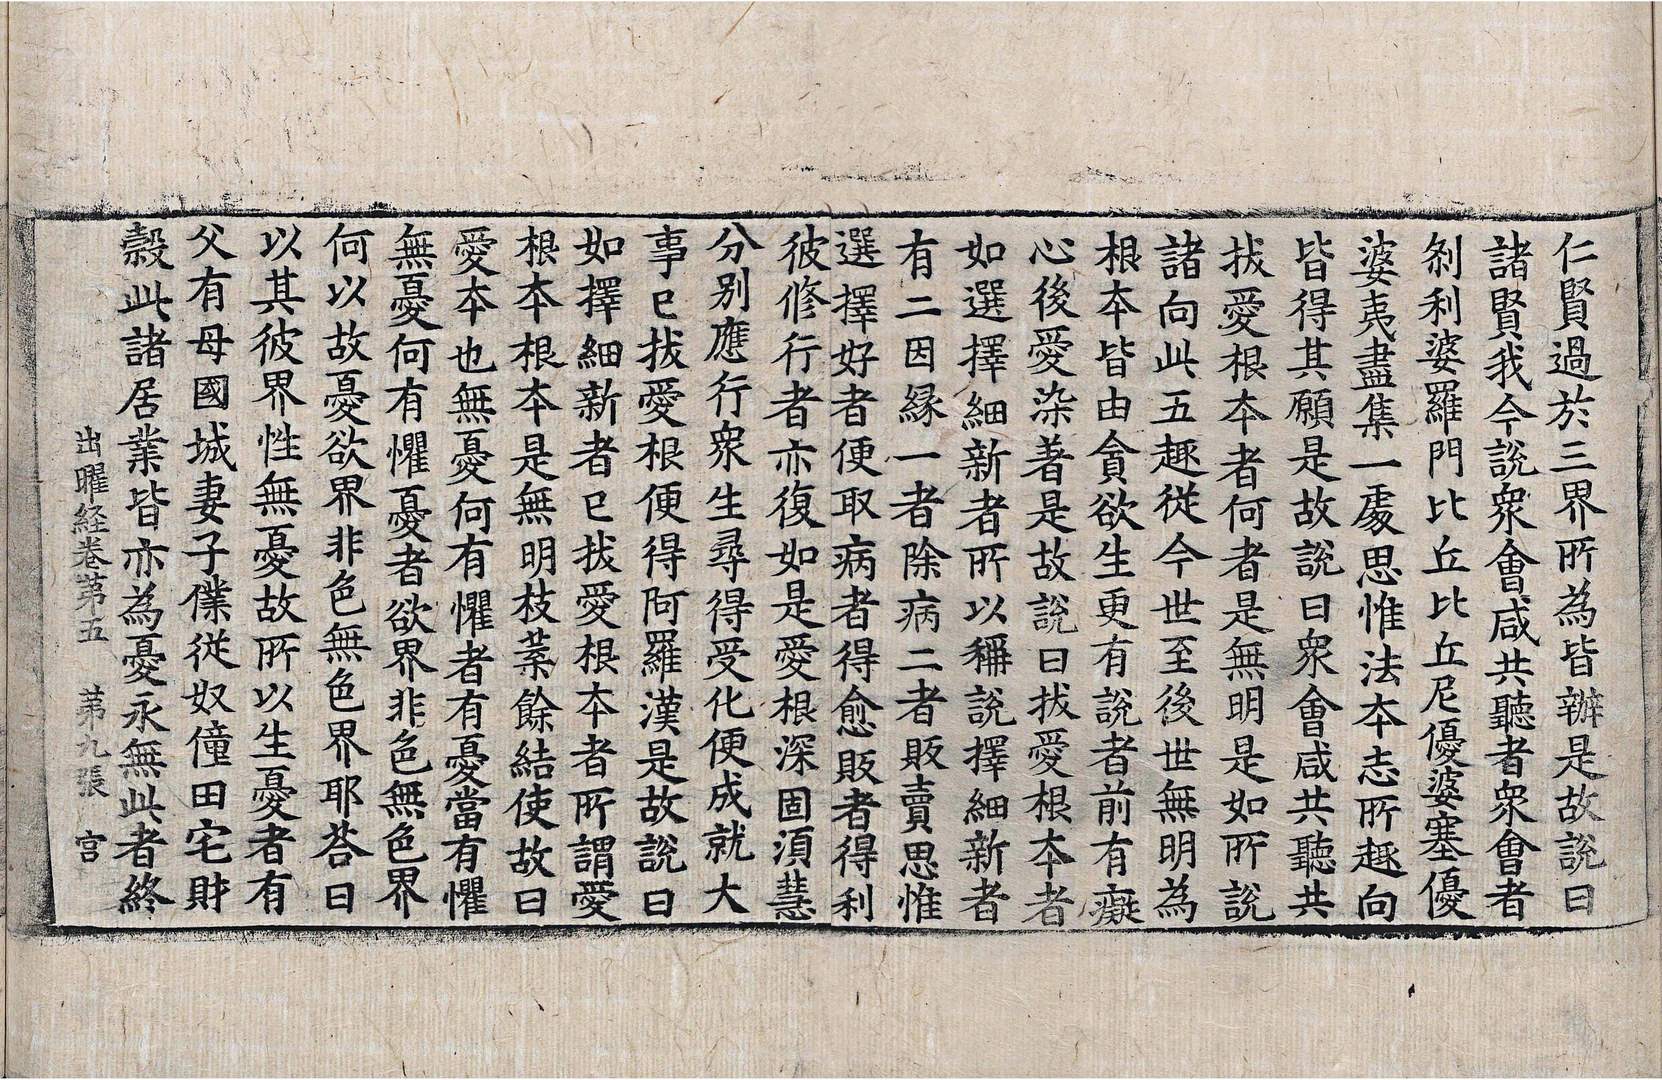 仁賢過於三界所為皆辦是故說曰
諸賢我今說衆會咸共聽者衆會者
剎利婆羅門比丘比丘尼優婆塞優
婆夷盡集一處思惟法本志所趣向
皆得其願是故說曰衆會咸共聽共
拔愛根本者何者是無明是如所說
諸向此五趣從今世至後世無明為
根本皆由貪欲生更有說者前有癡
心後愛染著是故說曰拔愛根本者
如選擇細新者所以稱說擇細新者
有二因緣一者除病二者販賣思惟
選擇好者便取病者得愈販者得利
彼修行者亦復如是愛根深固須慧
分別應行衆生尋得受化便成就大
事已拔愛根便得阿羅漢是故說曰
如擇細新者已拔愛根本者所謂愛
根本根本是無明枝葉餘結使故曰
愛本也無憂何有懼者有憂當有懼
無憂何有懼憂者欲界非色無色界
何以故憂欲界非色無色界耶荅曰
以其彼界性無憂故所以生憂者有
父有母國城妻子僕從奴僮田宅財
穀此諸居業皆亦為憂永無此者終
出曜経卷第五 第九張 宫